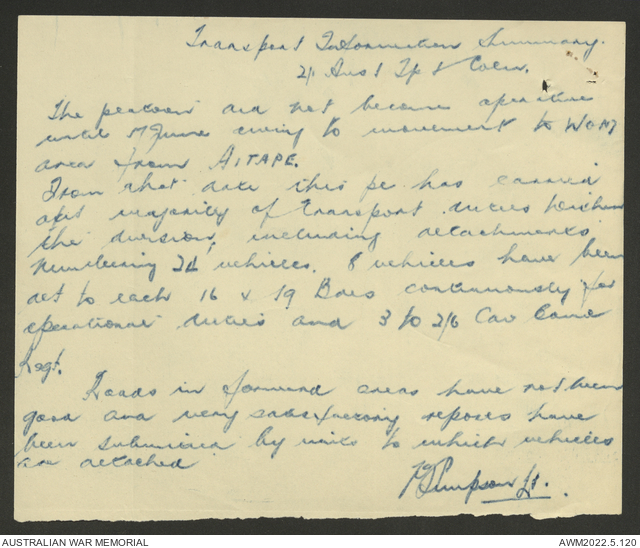 Transport Information Summary.
2/1 Aust Tp & Coln.
The platoon did not become operative
until 17 June owing to movement to WOM
area from AITAPE.
From that date this pl has carried
out majority of transport duties within
the division, including detachments
numbering 24 vehicles. 8 vehicles have been
det to each 16 & 19 Bdes continuously for
operational duties and 3 to 2/6 Cav Cdo
Regt.
Roads in forward areas have not been
good and very satisfactory reports have
been submitted by units to which vehicles
are attached
Simpson Lt.
AUSTRALIAN WAR MEMORIAL
AWM2022.5.120